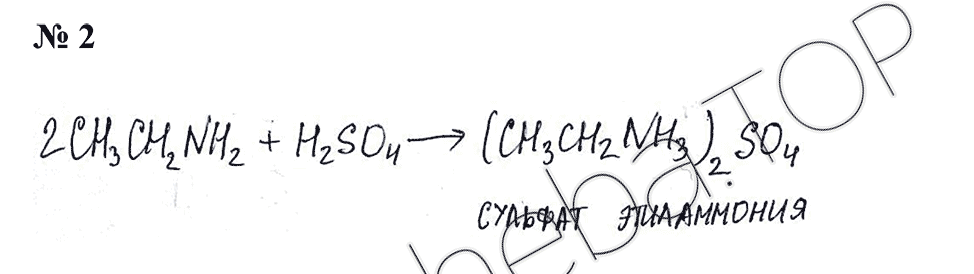 № 2
2CH₃CH₂NH₂ + H₂SO₄ → (CH₃CH₂NH₃)₂SO₄
СУЛЬФАТ ЭТИЛАММОНИЯ
heba.TOP